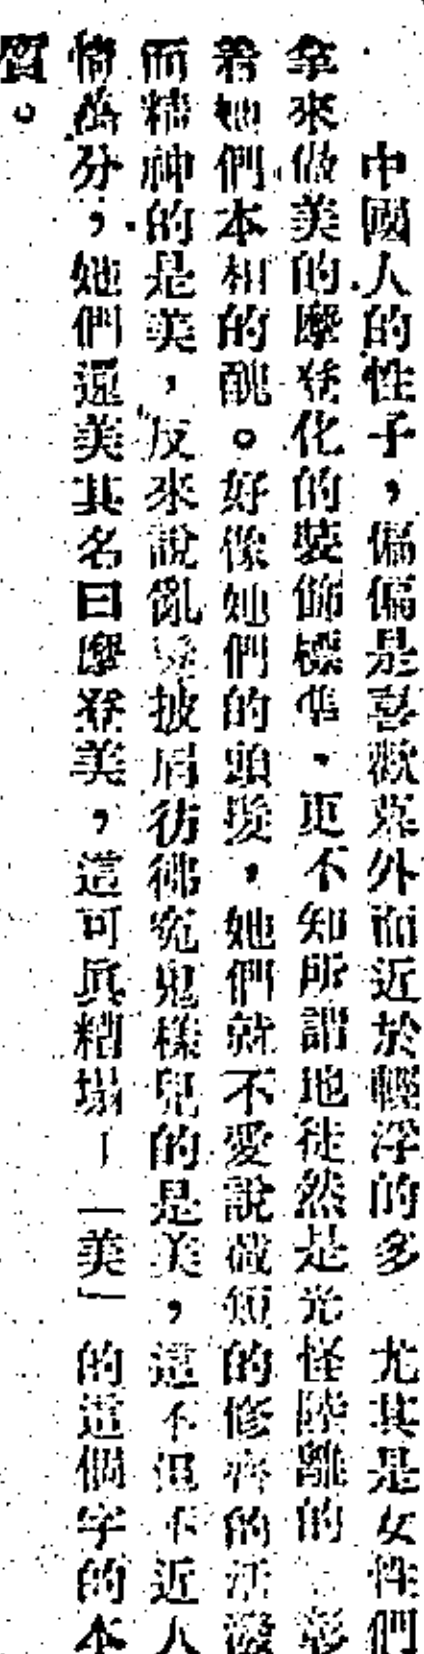 中國人的性子，偏偏是喜歡慕外而近於輕浮的多 尤其是女性們
拿來做美的摩登化的裝飾標準，更不知所謂地徒然是光怪陸離的 彰
着她們本相的醜。好像她們的頭髮，她們就不愛說截短的修齊的活潑
而精神的是美，反來說亂髮披肩彷彿冤鬼樣兒的是美，這不但不近人
情萬分，她們還美其名曰摩登美，這可真糟塌｜「美」的這個字的本
質。